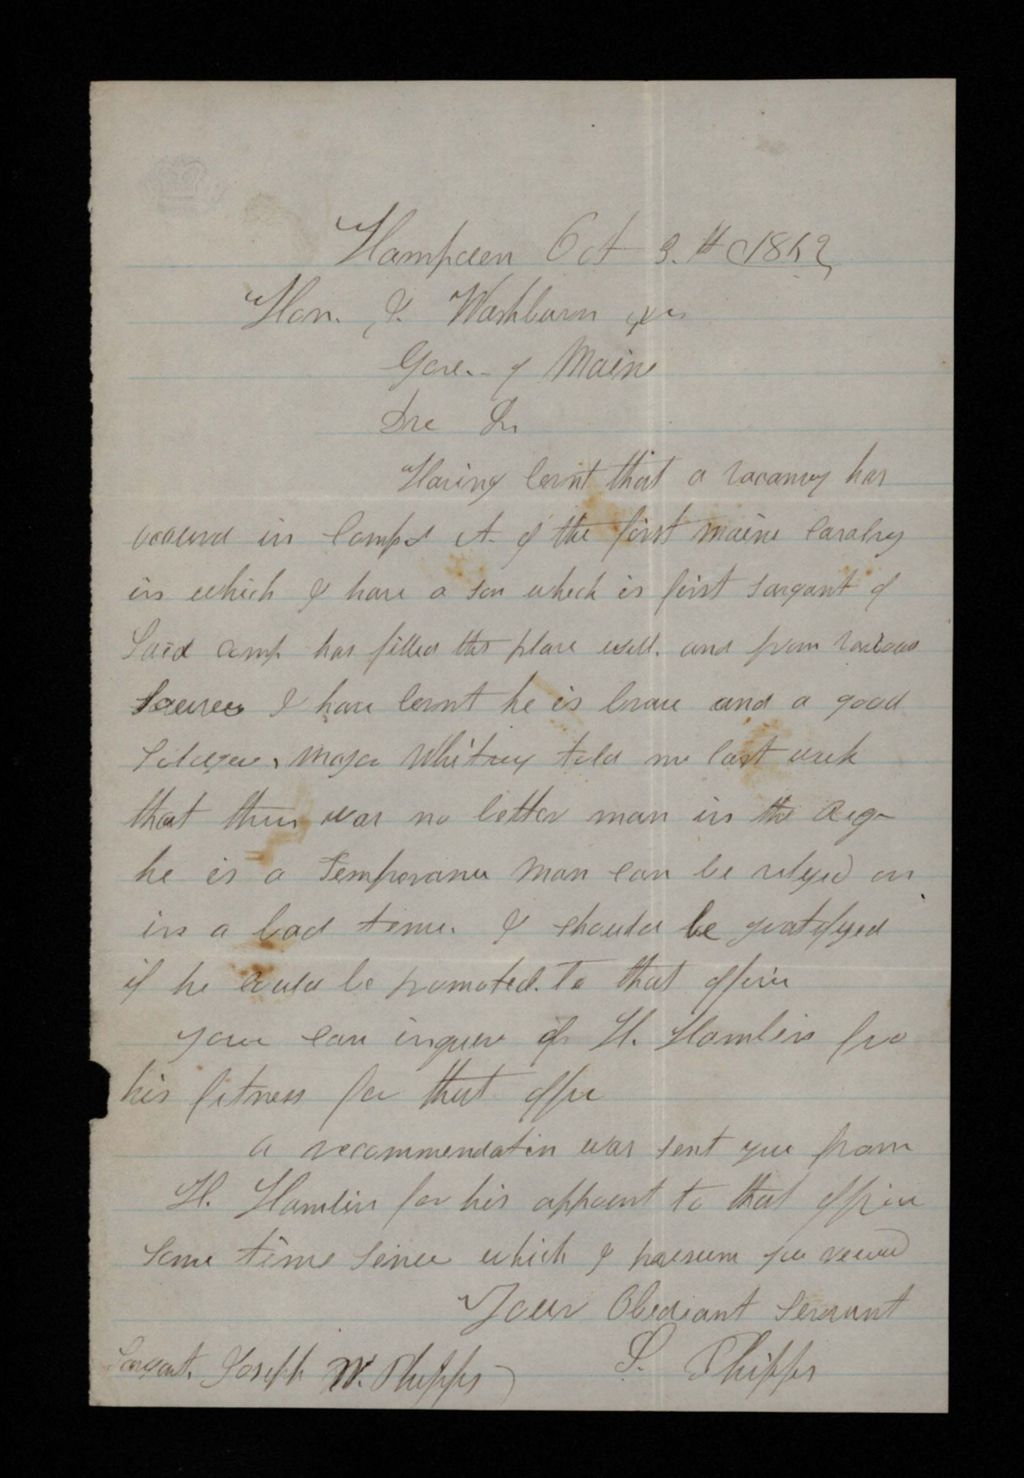 Hampden Oct 3. th 1862
Hon. I. Washburn Jr
Gove. of Maine
Dre Sr
Having lernt that a vacancy has
in Comp A. of the first Maine Cavalry
in which I have a son which is first Sargant of
Said Comp. has filled the place well. and from various
Sources I have lernt he is brave and a good
Major Whitney told me last week
that there was no better man in the Reg
he is a Temperance man can be relyed on
in a bad time. I should be gratifyed
if he could be promoted. to that office
you can inquire of H. Hamlin for
his fitness for that office
a recommendation was sent you from
H. Hamlin for his appoint to that office
Some time Since which I presum you
Your Obediant Servant
S. Phipps
Sargant. Joseph W. Phipps